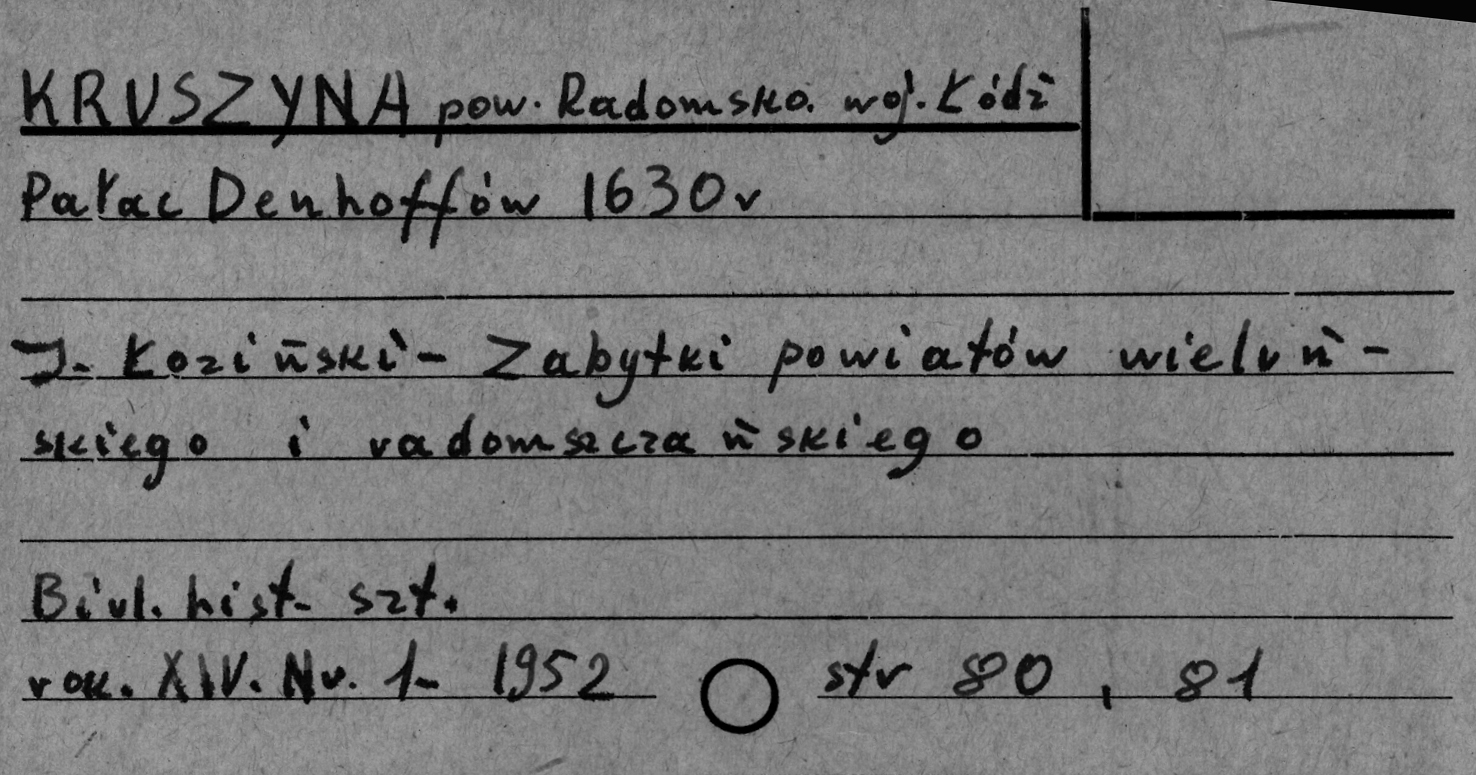 KRUSZYNA pow. Radomsko. woj. Łódź
Pałac Denhoffów 1630r
J. Łoziński - Zabytki powiatów wieluń-
skiego i radomszczańskiego
Biul. hist. szt.
rok. XIV. Nr. 1- 1952 str 80, 81